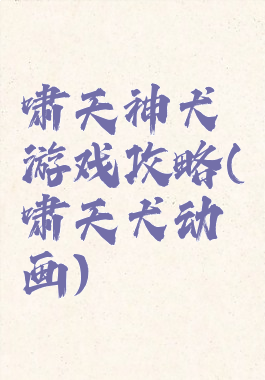 啸天神犬
游戏攻略(
啸天犬动
画)